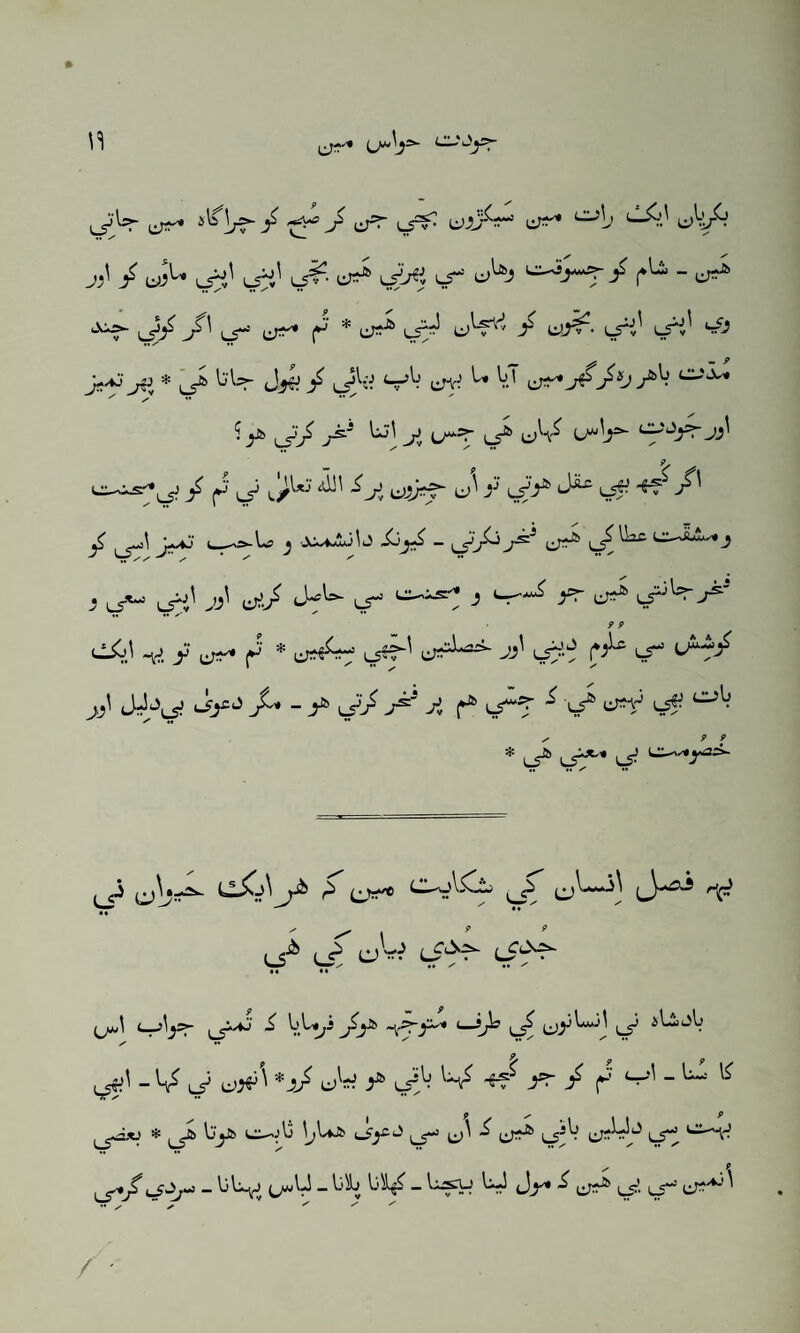 ۱۹ جودت حواس میں
ٹکریاں انکی رات میں سیکڑوں بھی جن کر صبح کر چراگاہ میں جاتی
ہیں - شام کر جمعیت وہان سی پھرتی ہیں بھی اپنی اپنی ماؤں کر اور
وی اپنی اپنی بچوں کر پہچان لیتی ہیں * تم میں سی اگر کوئی چند
مدت باہر رھکر گھر میں آیا ما بہن باپ بھائی کر بھول جاتا ھی * پھر تمیز
اور جودت حواس کہاں ھی جس پر اتنا فخر کرتی ھو ؟
اگر کچھ بھی عقل ھوتی تو ان چیزوں پر کہ الله تعالی نی تم کر بی محنت
و مشقت عطا کی ہیں فخر نکرتی - کیونکہ دانشمند و صاحب تمیز اسی کر
فخر جانتی ہیں جو کسب و محنت سی حاصل کریں اور اپنی سعی و
کوشش سی علوم دینی اور خصلتیں اچھی سیکھیں * تم میں تو یہ ایک
بات بھی نہیں ھی کہ جسی ھم پر فخر کرتی ھو - مگر دعوی بی دلیل اور
خصومت بی معنی ھی *
یہ فصل انسان کی شکایت میں کہ ھر ایک حیوان نی
جدی جدی بیان کی ھی
بادشاہ نی انسانوں کی طرف متوجہ ھوکر فرمایا کہ تمنی جواب اس
کا سنا - اب تم کر جو کچھ کہنا باقی ھو بیان کرو * اُنہوں نی کہا - ابھی
بہت سی دلیلیں باقی ہیں کہ ان سی دعوی ھمارا ثابت ھوتا ھی * بعضی
اُنمیں سی یی ہیں کہ مول لینا بیچنا - کھلانا پلانا - لباس پہنانا - سردی گرمی